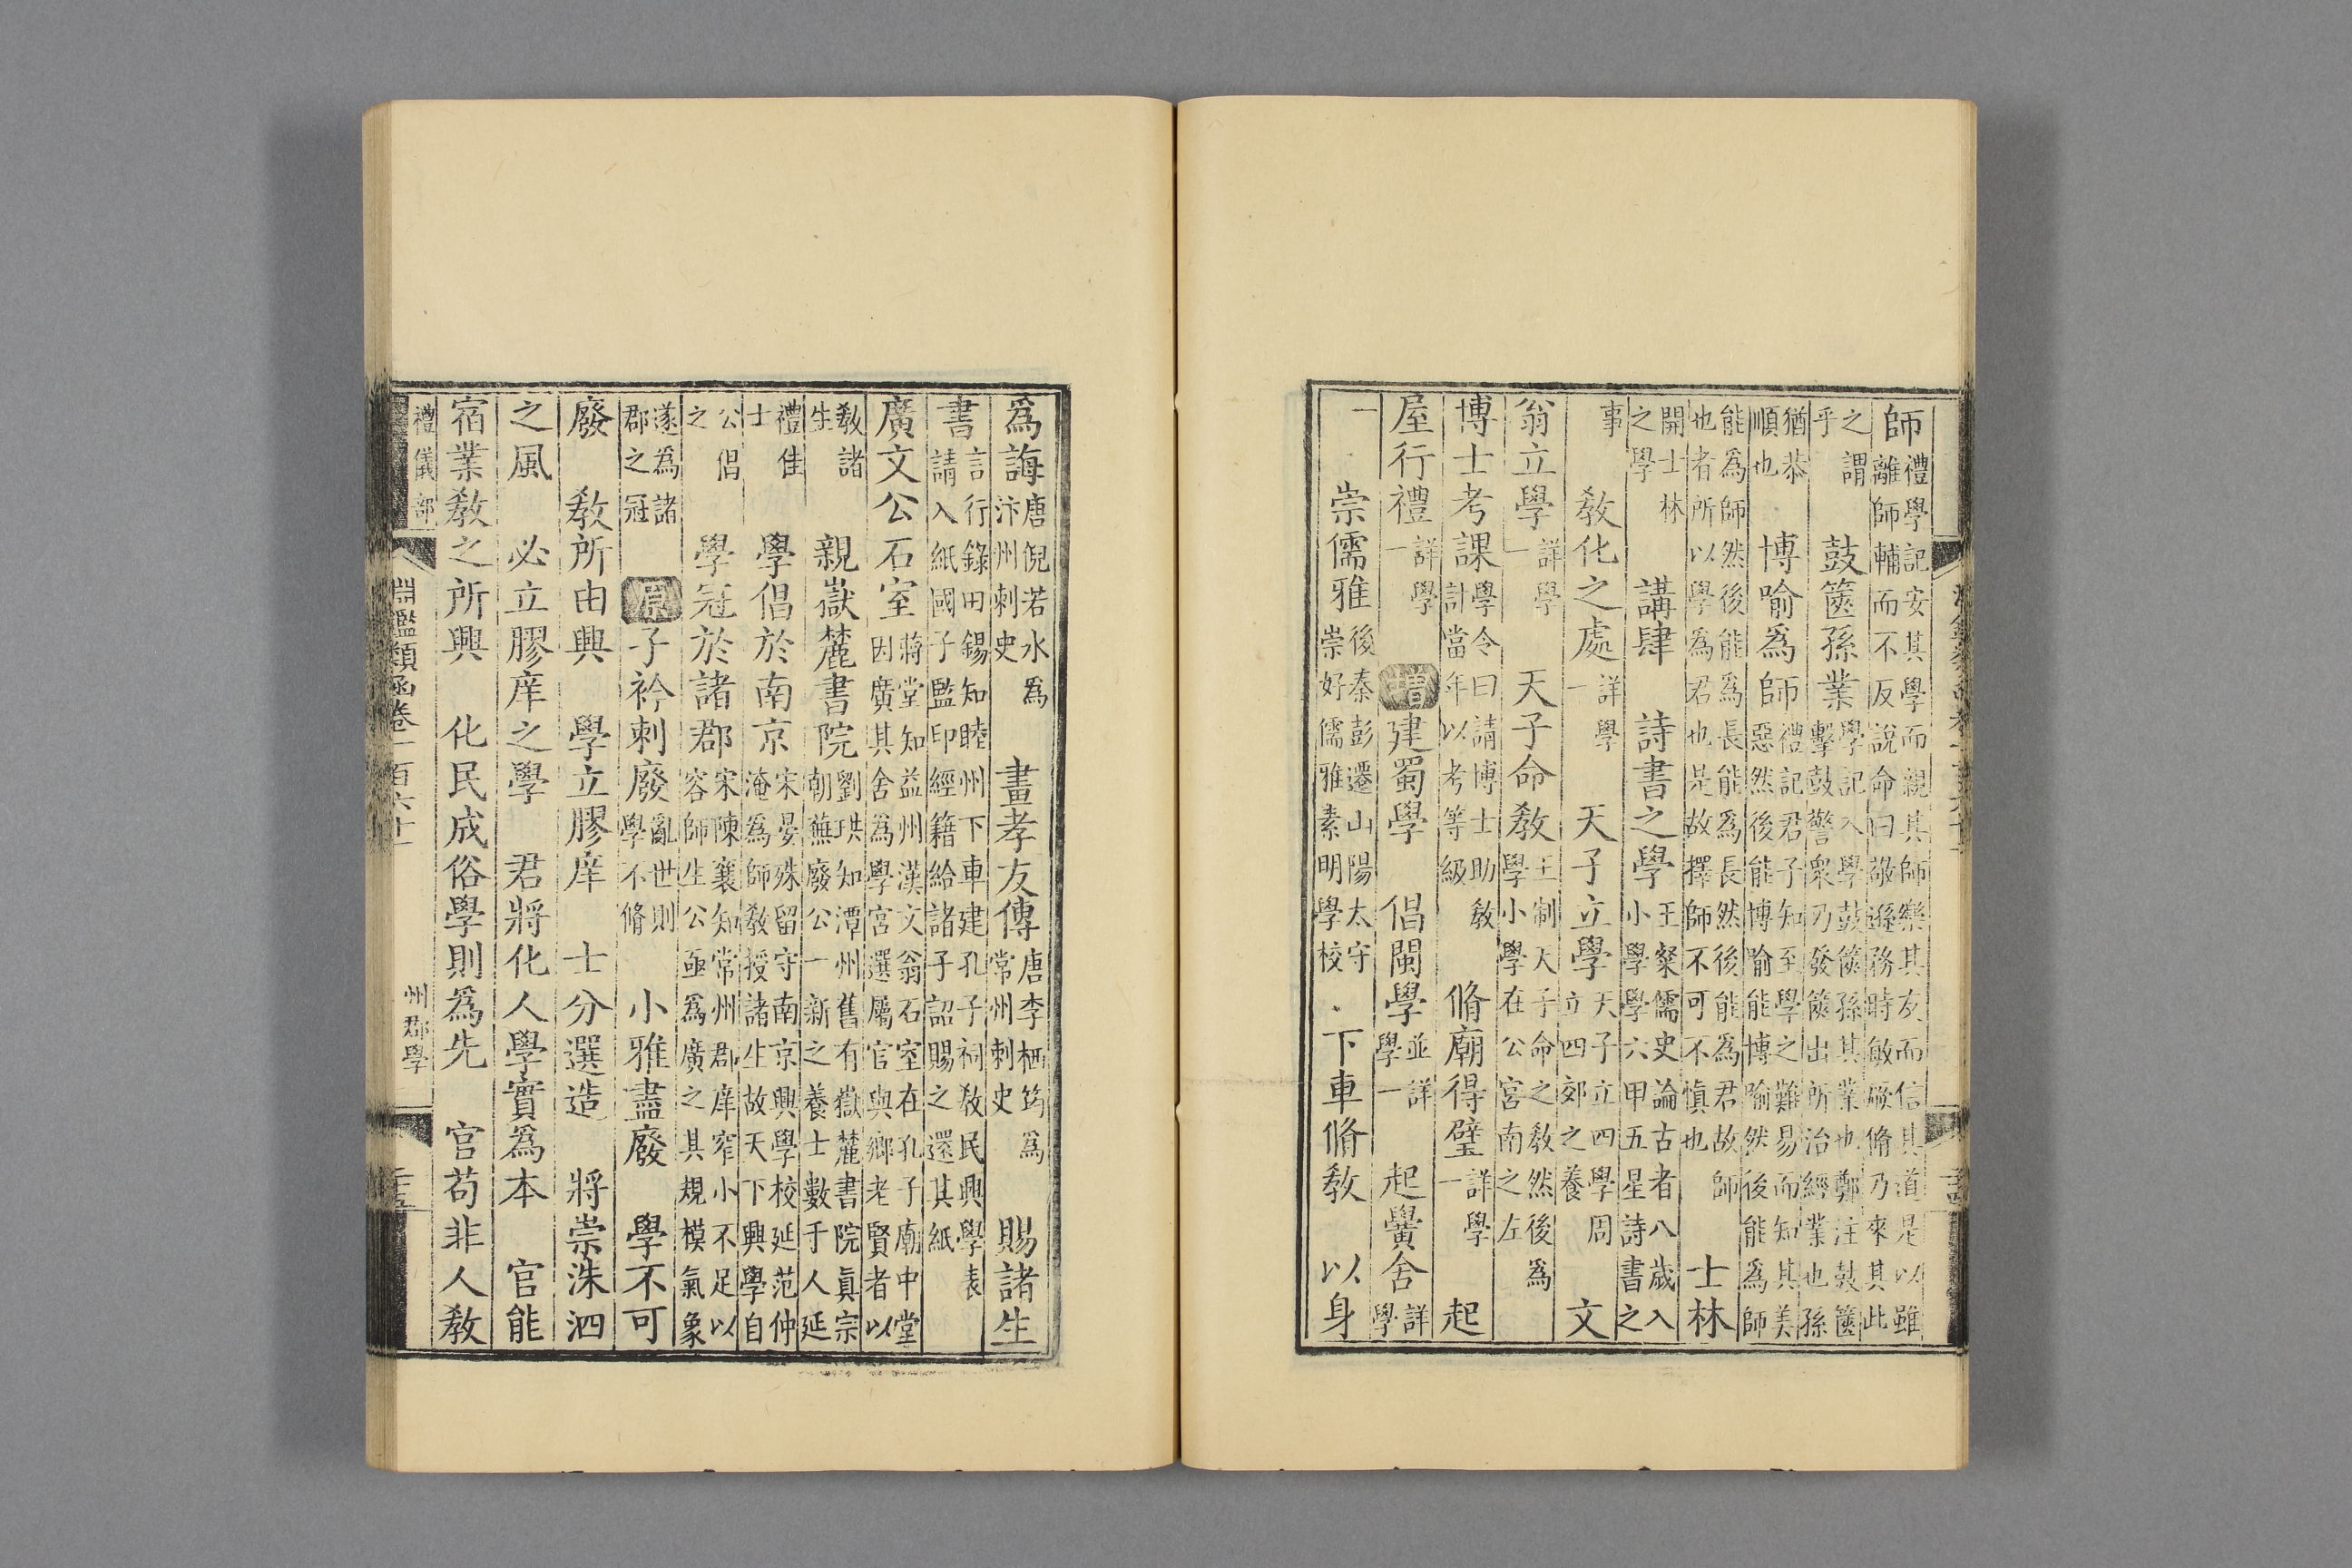 師禮學記安其學而親其師樂其友而信其道是以雖離師輔而不反說命曰敬遜務時敏厥脩乃來其此
之謂乎 鼓篋孫業學記入學鼓篋孫其業也鄭注鼓篋擊鼓警衆乃發篋出所治經業也孫
猶恭順也 博喻爲師禮記君子知至學之難易而知其美惡然後能博喻能博喻然後能爲師
能爲師然後能爲長能爲長然後能爲君故師也者所以學爲君也是故擇師不可不慎也 士林
開士林之學 講肆 詩書之學王粲儒史論古者八歲入小學學六甲五星詩書之
事 敎化之處詳學一 天子立學天子立四學周立四郊之養 文
翁立學詳學一 天子命敎王制天子命之敎然後爲學小學在公宮南之左
博士考課學令曰請博士助敎計當年以考等級 脩廟得璧詳學一 起
屋行禮詳學一 增 建蜀學 倡閩學並詳學一 起黌舍詳學
一 崇儒雅後秦彭遷山陽太守崇好儒雅素明學校 下車脩敎 以身
爲誨唐倪若水爲汴州刺史 畫孝友傳唐李栖筠爲常州刺史 賜諸生
書言行錄田錫知睦州下車建孔子祠敎民興學表請入紙國子監印經籍給諸子詔賜之還其紙
廣文公石室蔣堂知益州漢文翁石室在孔子廟中堂因廣其舍爲學宮選屬官與鄉老賢者以
敎諸生 親嶽麓書院劉珙知潭州舊有嶽麓書院眞宗朝蕪廢公一新之養士數于人延
禮佳士 學倡於南京宋晏殊留守南京興學校延范仲淹爲師敎授諸生故天下興學自
公倡之 學冠於諸郡宋陳襄知常州郡庠窄小不足以容師生公亟爲廣之其規模氣象
遂爲諸郡之冠 原 子衿刺廢亂世則學不脩 小雅盡廢 學不可
廢 敎所由興 學立膠庠 士分選造 將崇洙泗
之風 必立膠庠之學 君將化人學實爲本 官能
宿業敎之所興 化民成俗學則爲先 官苟非人敎
禮儀部 淵鑑類函卷一百六十 州郡學